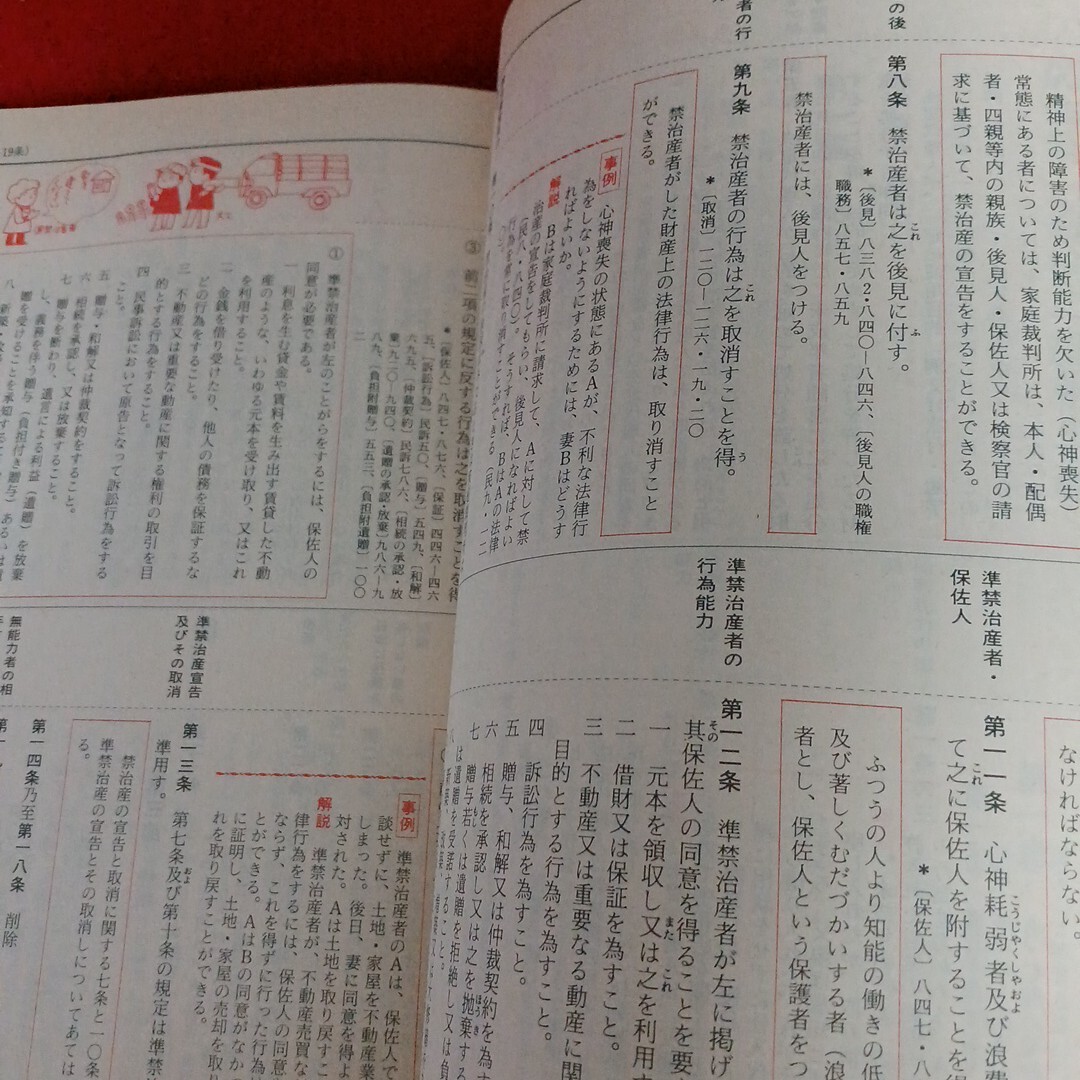 の後
者の行
精神上の障害のため判断能力を欠いた（心神喪失）
常態にある者については、家庭裁判所は、本人・配偶
者・四親等内の親族・後見人・保佐人又は検察官の請
求に基づいて、禁治産の宣告をすることができる。
第八条　禁治産者は之を後見に付す。
＊〔後見〕八三八2・八四〇―八四六、〔後見人の職権
職務〕八五七・八五九
禁治産者には、後見人をつける。
第九条　禁治産者の行為は之を取消すことを得。
＊〔取消〕一二〇―一二六・一九・二〇
禁治産者がした財産上の法律行為は、取り消すこと
ができる。
事例　心神喪失の状態にあるAが、不利な法律行
為をしないようにするためには、妻Bはどうす
ればよいか。
解説　Bは家庭裁判所に請求して、Aに対して禁
治産の宣告をしてもらい、後見人になればよい
（民八・八四〇）。そうすれば、BはAの法律
行為を常に取り消すことができる（民九・一二
準禁治産者・
保佐人
準禁治産者の
行為能力
なければならない。
第一一条　心神耗弱者及び浪費
て之に保佐人を附することを得
＊〔保佐人〕八四七・八
ふつうの人より知能の働きの低
及び著しくむだづかいする者（浪
者とし、保佐人という保護者をつ
第一二条　準禁治産者が左に掲げ
其保佐人の同意を得ることを要
一　元本を領収し又は之を利用す
二　借財又は保証を為すこと。
三　不動産又は重要なる動産に関
目的とする行為を為すこと。
四　訴訟行為を為すこと。
五　贈与、和解又は仲裁契約を為す
六　相続を承認し又は之を抛棄する
七　贈与若くは遺贈を拒絶し又は負
は遺贈を受諾すること。
19条）
③　前二項の規定に反する行為は之を取消すことを得
＊〔保佐人〕八四七・八七六、〔保証〕四四六―四六
五、〔訴訟行為〕民訴五〇、〔贈与〕五四九、〔和解〕
六九五、〔仲裁契約〕民訴七八六、〔相続の承認・放
棄〕九二〇―九四〇、〔遺贈の承認・放棄〕九八六―九
八九、〔負担附贈与〕五五三、〔負担附遺贈〕一〇〇
二
①　準禁治産者が左のことがらをするには、保佐人の
同意が必要である。
一　利息を生む貸金や賃料を生み出す賃貸した不動
産のような、いわゆる元本を受け取り、又はこれ
を利用すること。
二　金銭を借り受けたり、他人の債務を保証するな
どの行為をすること。
三　不動産又は重要な動産に関する権利の取引を目
的とする行為をすること。
四　民事訴訟において原告となって訴訟行為をする
こと。
五　贈与・和解又は仲裁契約をすること。
六　相続を承認し、又は放棄すること。
七　贈与を断わり、遺言による利益（遺贈）を放棄
し、義務を伴う贈与（負担付き贈与）あるいは遺
贈を受けることを承知すること。
準禁治産宣告
及びその取消
無能力者の相
事例　準禁治産者のAは、保佐人で
談せずに、土地・家屋を不動産業
しまった。後日、妻に同意を得よ
対された。Aは土地を取り戻すこ
解説　準禁治産者が、不動産売買な
律行為をするには、保佐人の同意
ならず、これを得ずに行った行為は
とができる。AはBの同意がなか
に証明し、土地・家屋の売却を取り
れを取り戻すことができる。
第一三条　第七条及び第十条の規定は準禁治
準用す。
禁治産の宣告と取消に関する七条と一〇条
準禁治産の宣告とその取消しについてあては
る。
第一四条乃至第一八条　削除